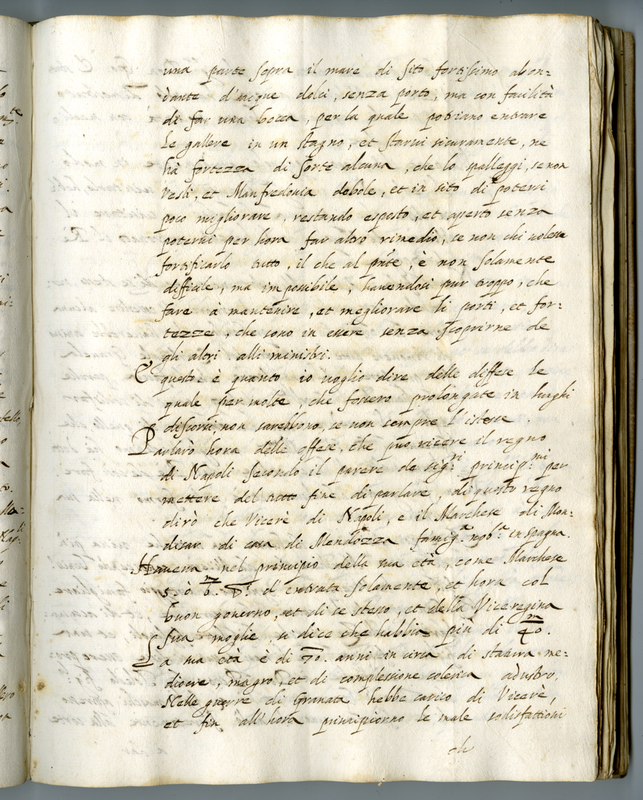 una parte sopra il mare di sito fortissimo abon:
dante d'acque dolci, senza porto, ma con facilità
di far una bocca, per la quale potriano entrare
le gallere in un stagno, et starvi sicuramente, ne
ha fortezza di sorte alcuna, che lo spalleggi, se non
Vesti, et Manfredonia debole, et in sito di potersi
poco migliorare, restando esposto, et aperto senza
potervi per hora far altro rimedio, se non chi volesse
fortificarlo tutto, il che al pñte, è non solamente
difficile, ma impossibile, havendosi pur troppo, che
fare a mantenire, et megliorare li porti, et for:
tezze, che sono in essere senza scoprirne de
gli altri alli ministri.
Questo è quanto io voglio dire delle diffese le
quale per molte, che fossero prolongate in lunghi
discorsi non sarebbono, se non sempre l'istesse.
Parlarò hora delle offese, che può ricere il regno
di Napoli secondo il parere de sigri principmi per
mettere del tutto fine di parlare, di questo regno
dirò che Vicere di Napoli, e il Marchese di Mon:
di casa di Mendozza famiga nobe in spagna.
Haveva nel principio della sua età, come Marchese
5. ò 6. d'entrata solamente, et hora col
buon governo, et di se stesso, et della Viceregina
sua moglie, si dice che habbia più di 40.
La sua età è di 70. anni in circa di statura me:
diocre, magro, et di complessione colerica adusbo,
Nelle guerre di Granata hebbe carico di Vicerè,
et fin all'hora principiorno le male sodisfattioni